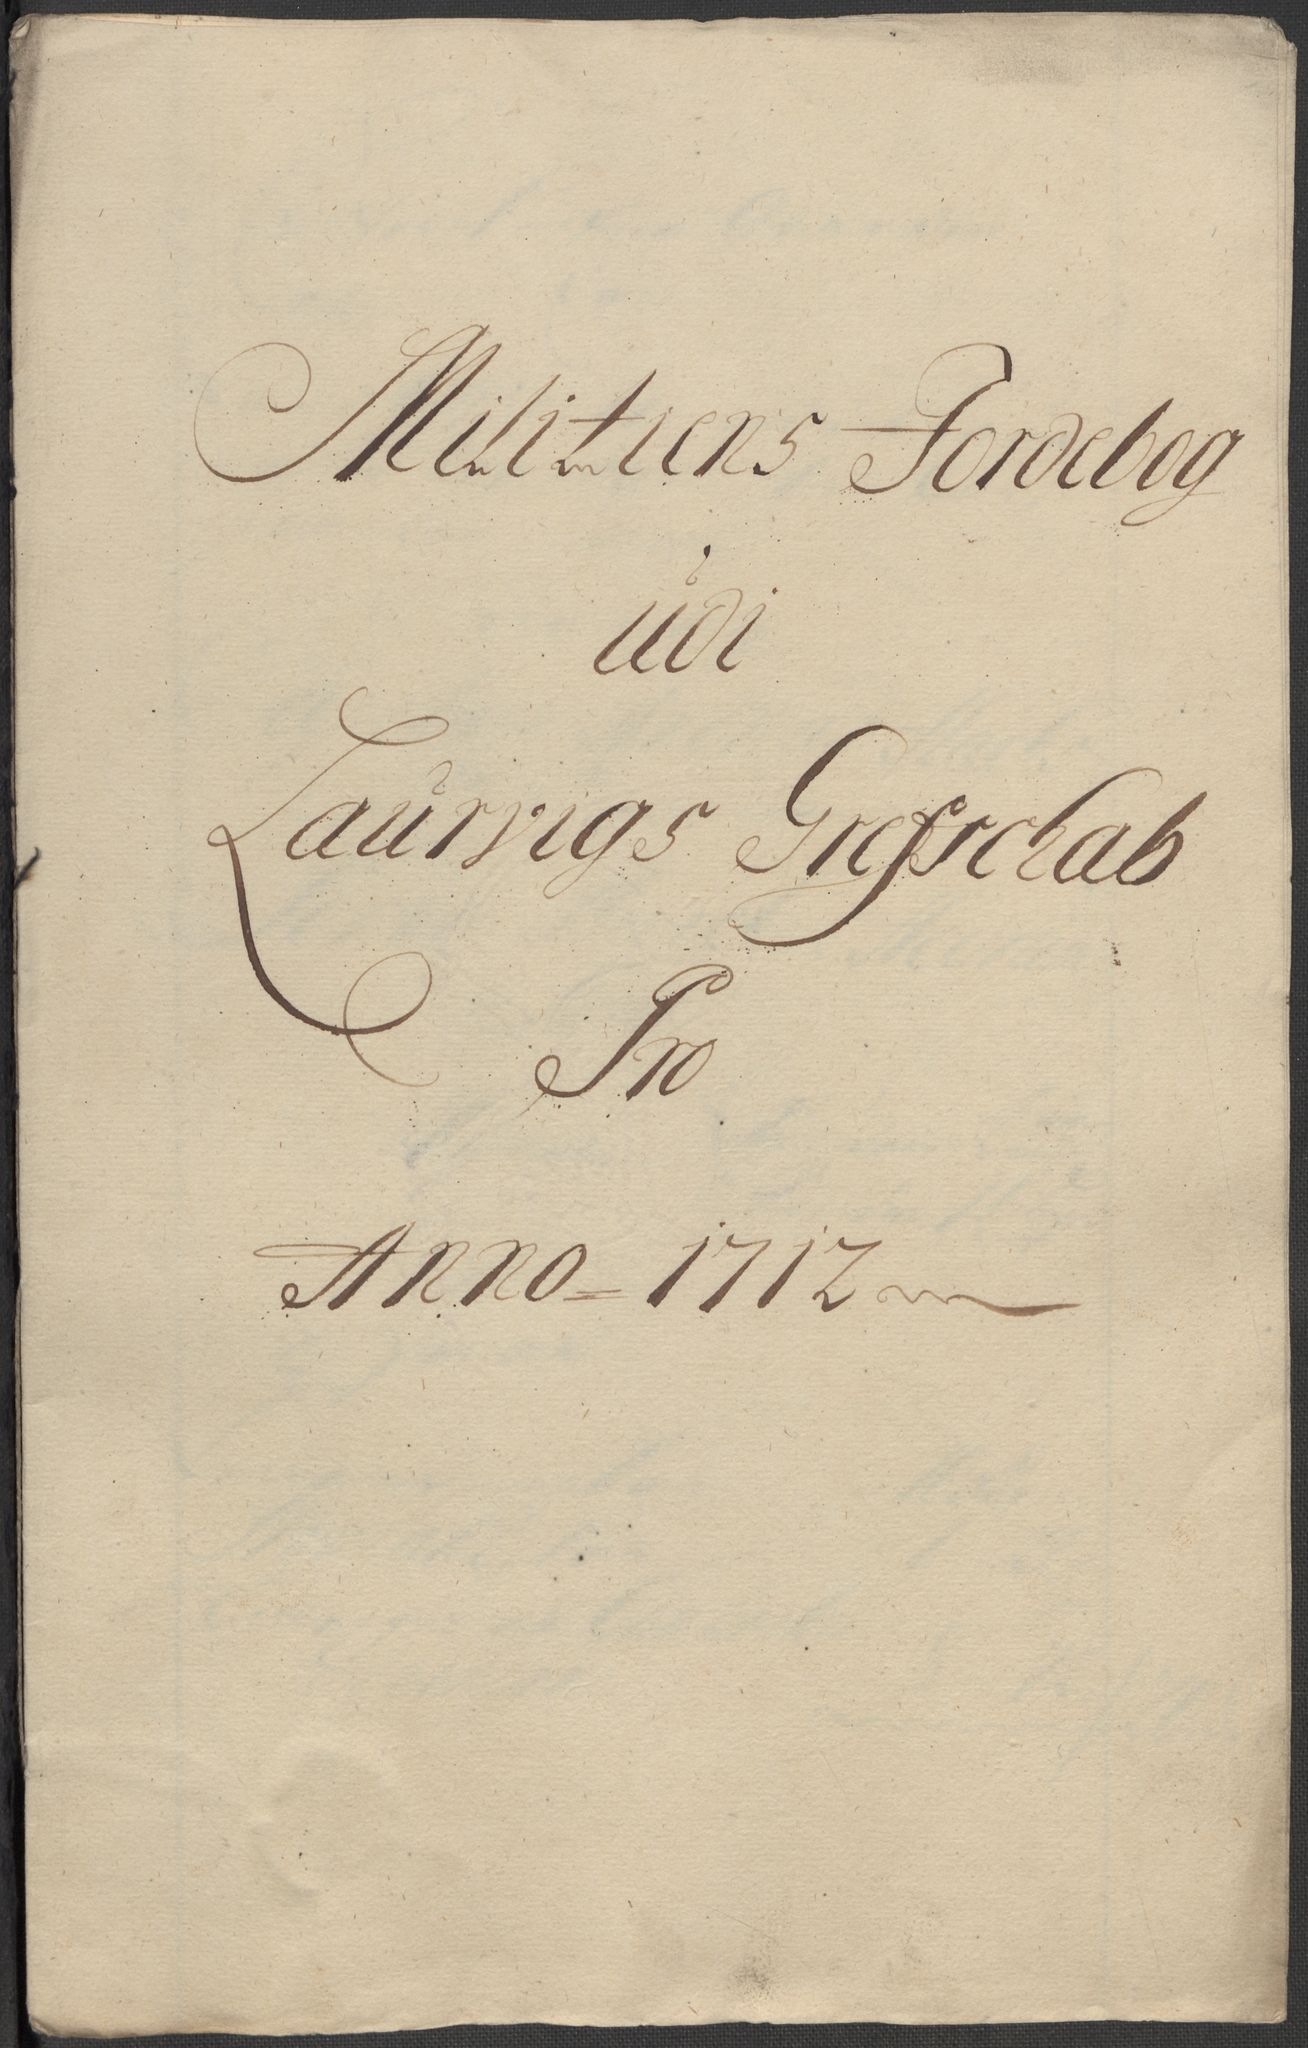 Militiens Jordebog
udi
Laurvigs Grefschab
Pro
Anno = 1712